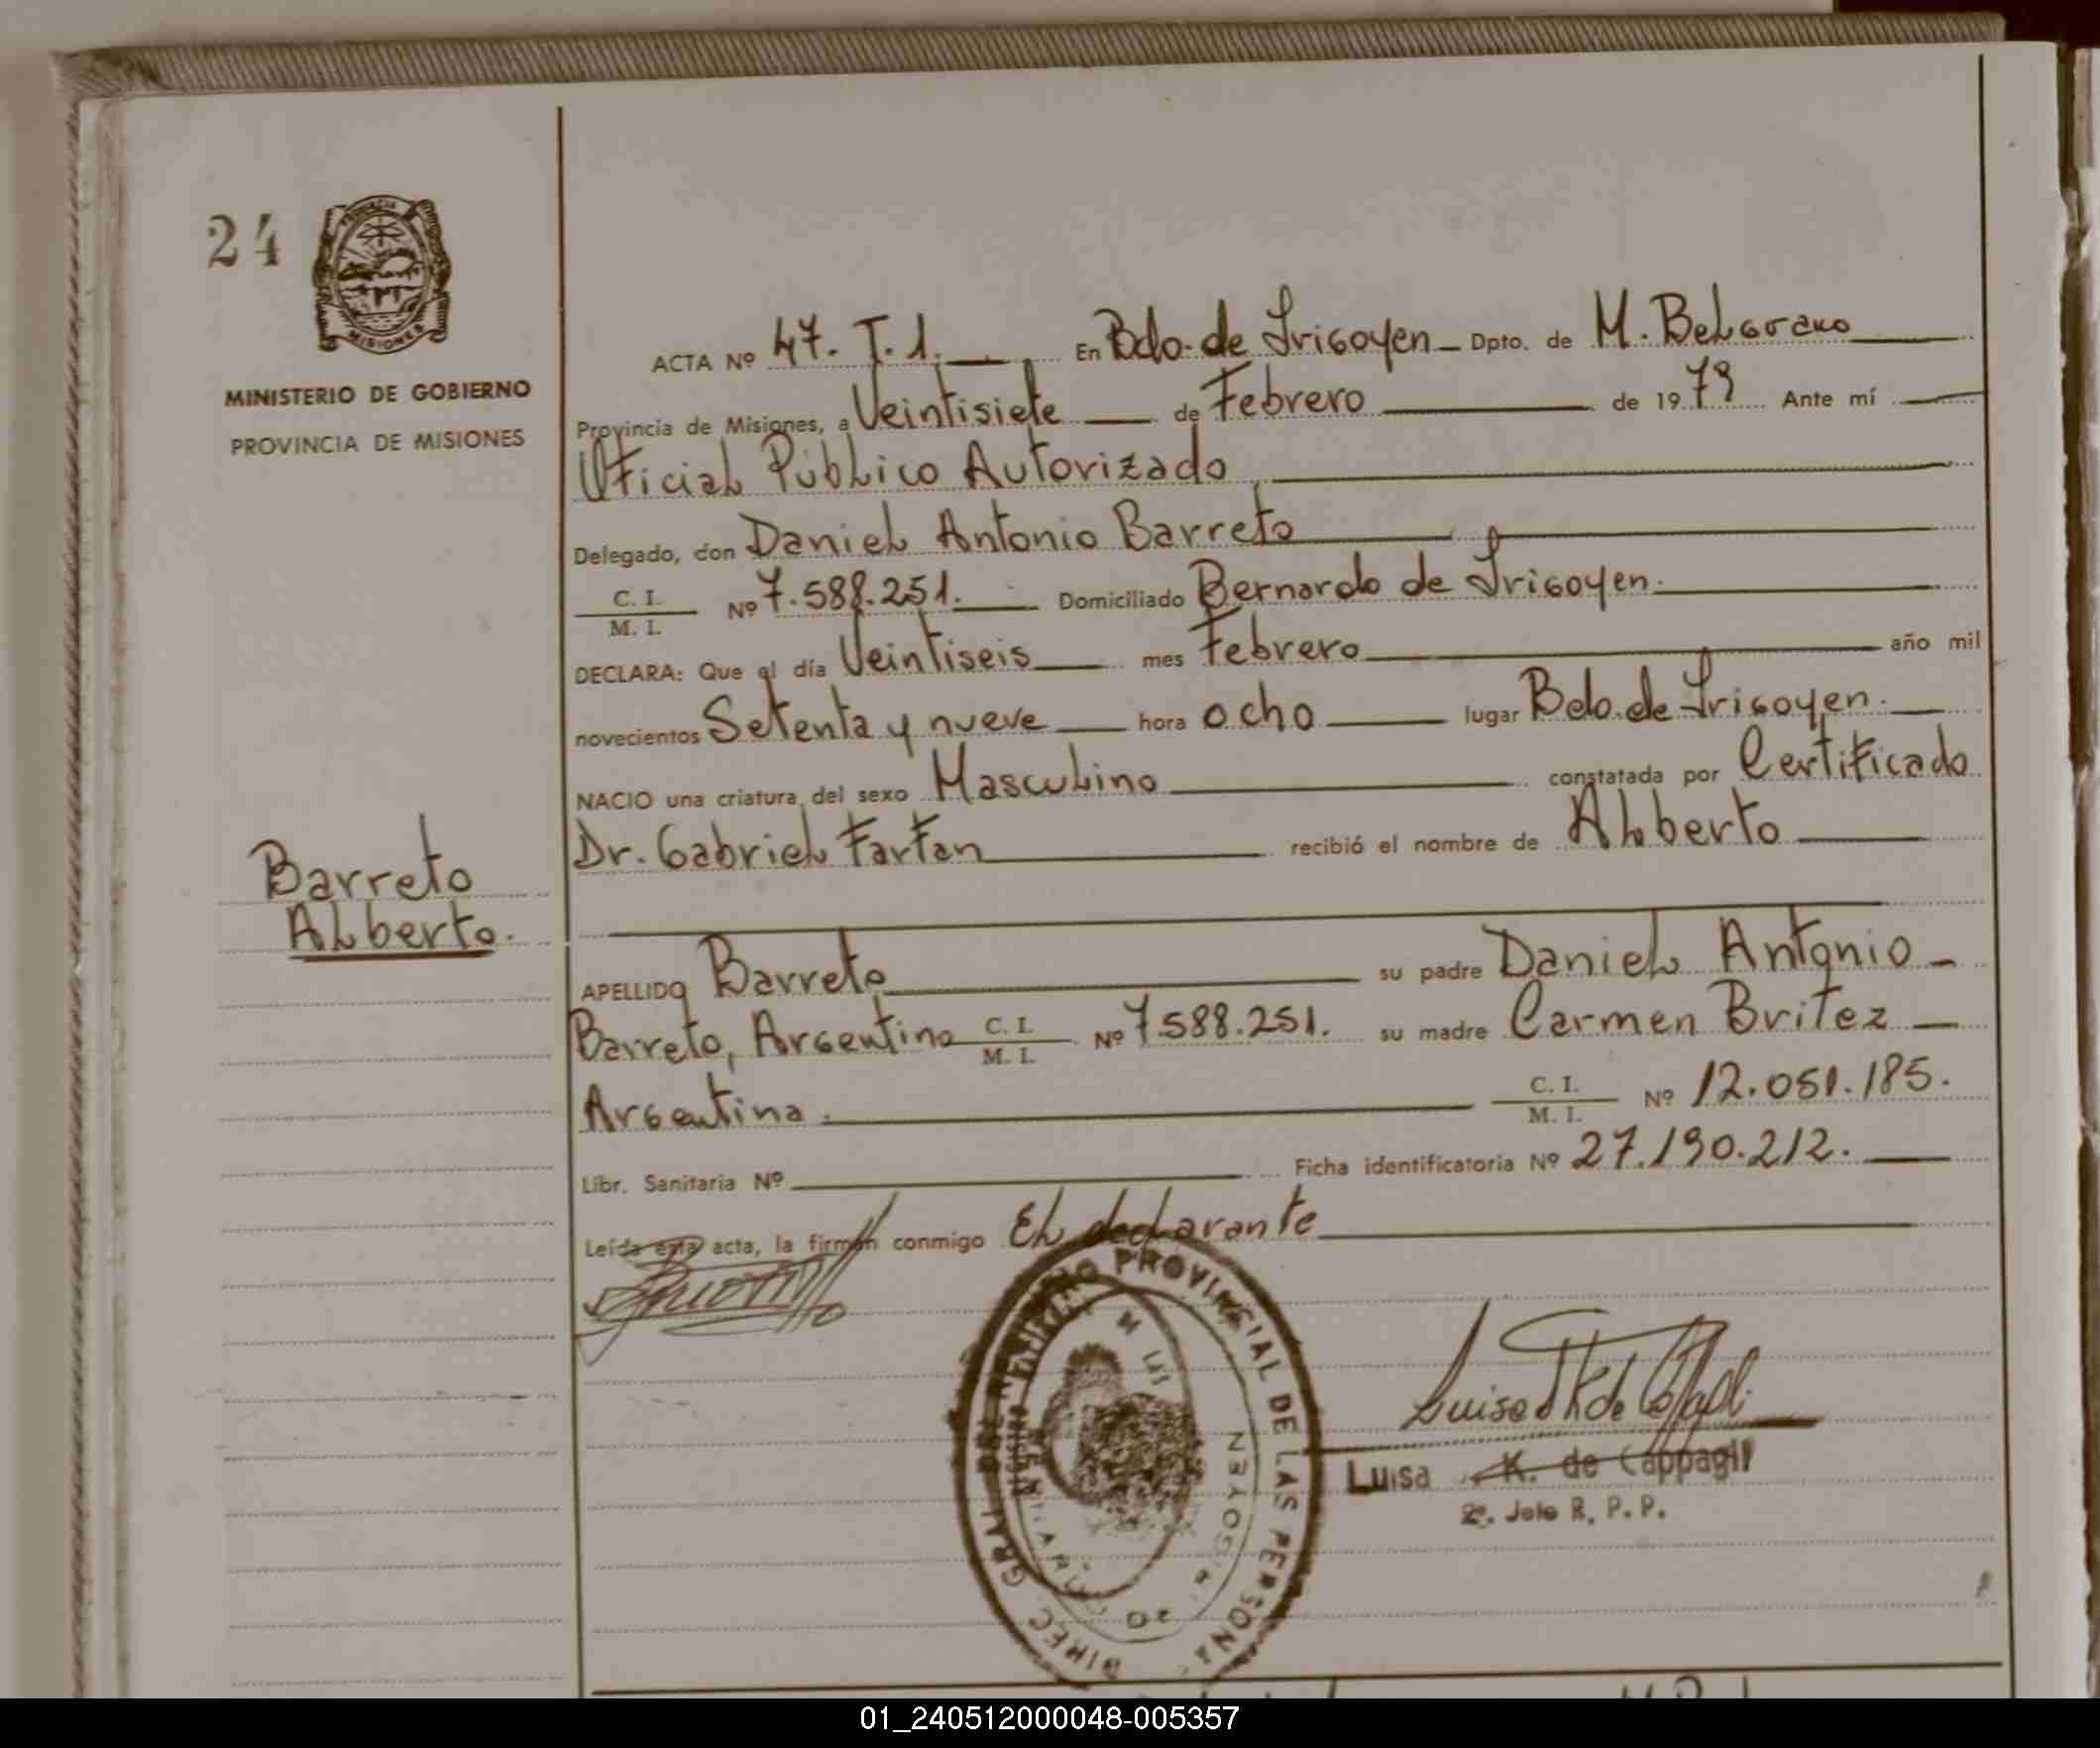 24
MINISTERIO DE GOBIERNO
PROVINCIA DE MISIONES
ACTA Nº 47. T. 1. En Bdo. de Irigoyen Dpto. de M. Belgrano
Provincia de Misiones, a Veintisiete de Febrero de 1979 Ante mí
Oficial Público Autorizado
Delegado, don Daniel Antonio Barreto
C. I. Nº 7.588.251. Domiciliado Bernardo de Irigoyen.
M. I.
DECLARA: Que el día Veintiseis mes Febrero año mil
novecientos Setenta y nueve hora ocho lugar Bdo. de Irigoyen.
NACIO una criatura del sexo Masculino constatada por Certificado
Dr. Gabriel Farfan recibió el nombre de Alberto
Barreto
Alberto.
APELLIDO Barreto su padre Daniel Antonio
Barreto, Argentino C. I. Nº 7.588.251. su madre Carmen Britez
M. I.
Argentina. C. I. Nº 12.051.185.
M. I.
Libr. Sanitaria Nº Ficha identificatoria Nº 27.190.212.
Leída esta acta, la firman conmigo El declarante
PROVINCIAL DE LAS PERSONA
DIREC GRAL DEL
LAS
IRIGOYEN
Luisa K. de Cappagli
2º. Jefe R. P. P.
01_240512000048-005357